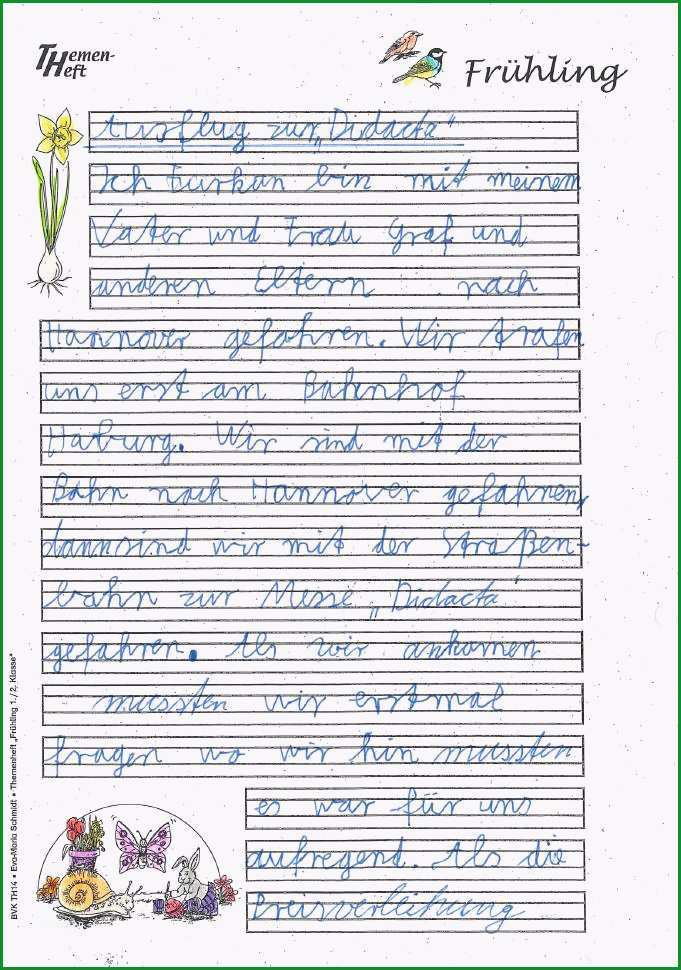 THemen-
Heft
Frühling
Ausflug zur „Didacta"
Ich Furkan bin mit meinem
Vater und Frau Graf und
anderen Eltern nach
Hannover gefahren. Wir trafen
uns erst am Bahnhof
Haburg. Wir sind mit der
Bahn nach Hannover gefahren,
dann sind wir mit der Straßen-
bahn zur Messe „Didacta"
gefahren. Als wir ankomen
mussten wir erstmal
fragen wo wir hin mussten
es war für uns
aufregend. Als die
Preisverleihung
BVK TH14 • Eva-Maria Schmidt • Themenheft „Frühling 1./2. Klasse"